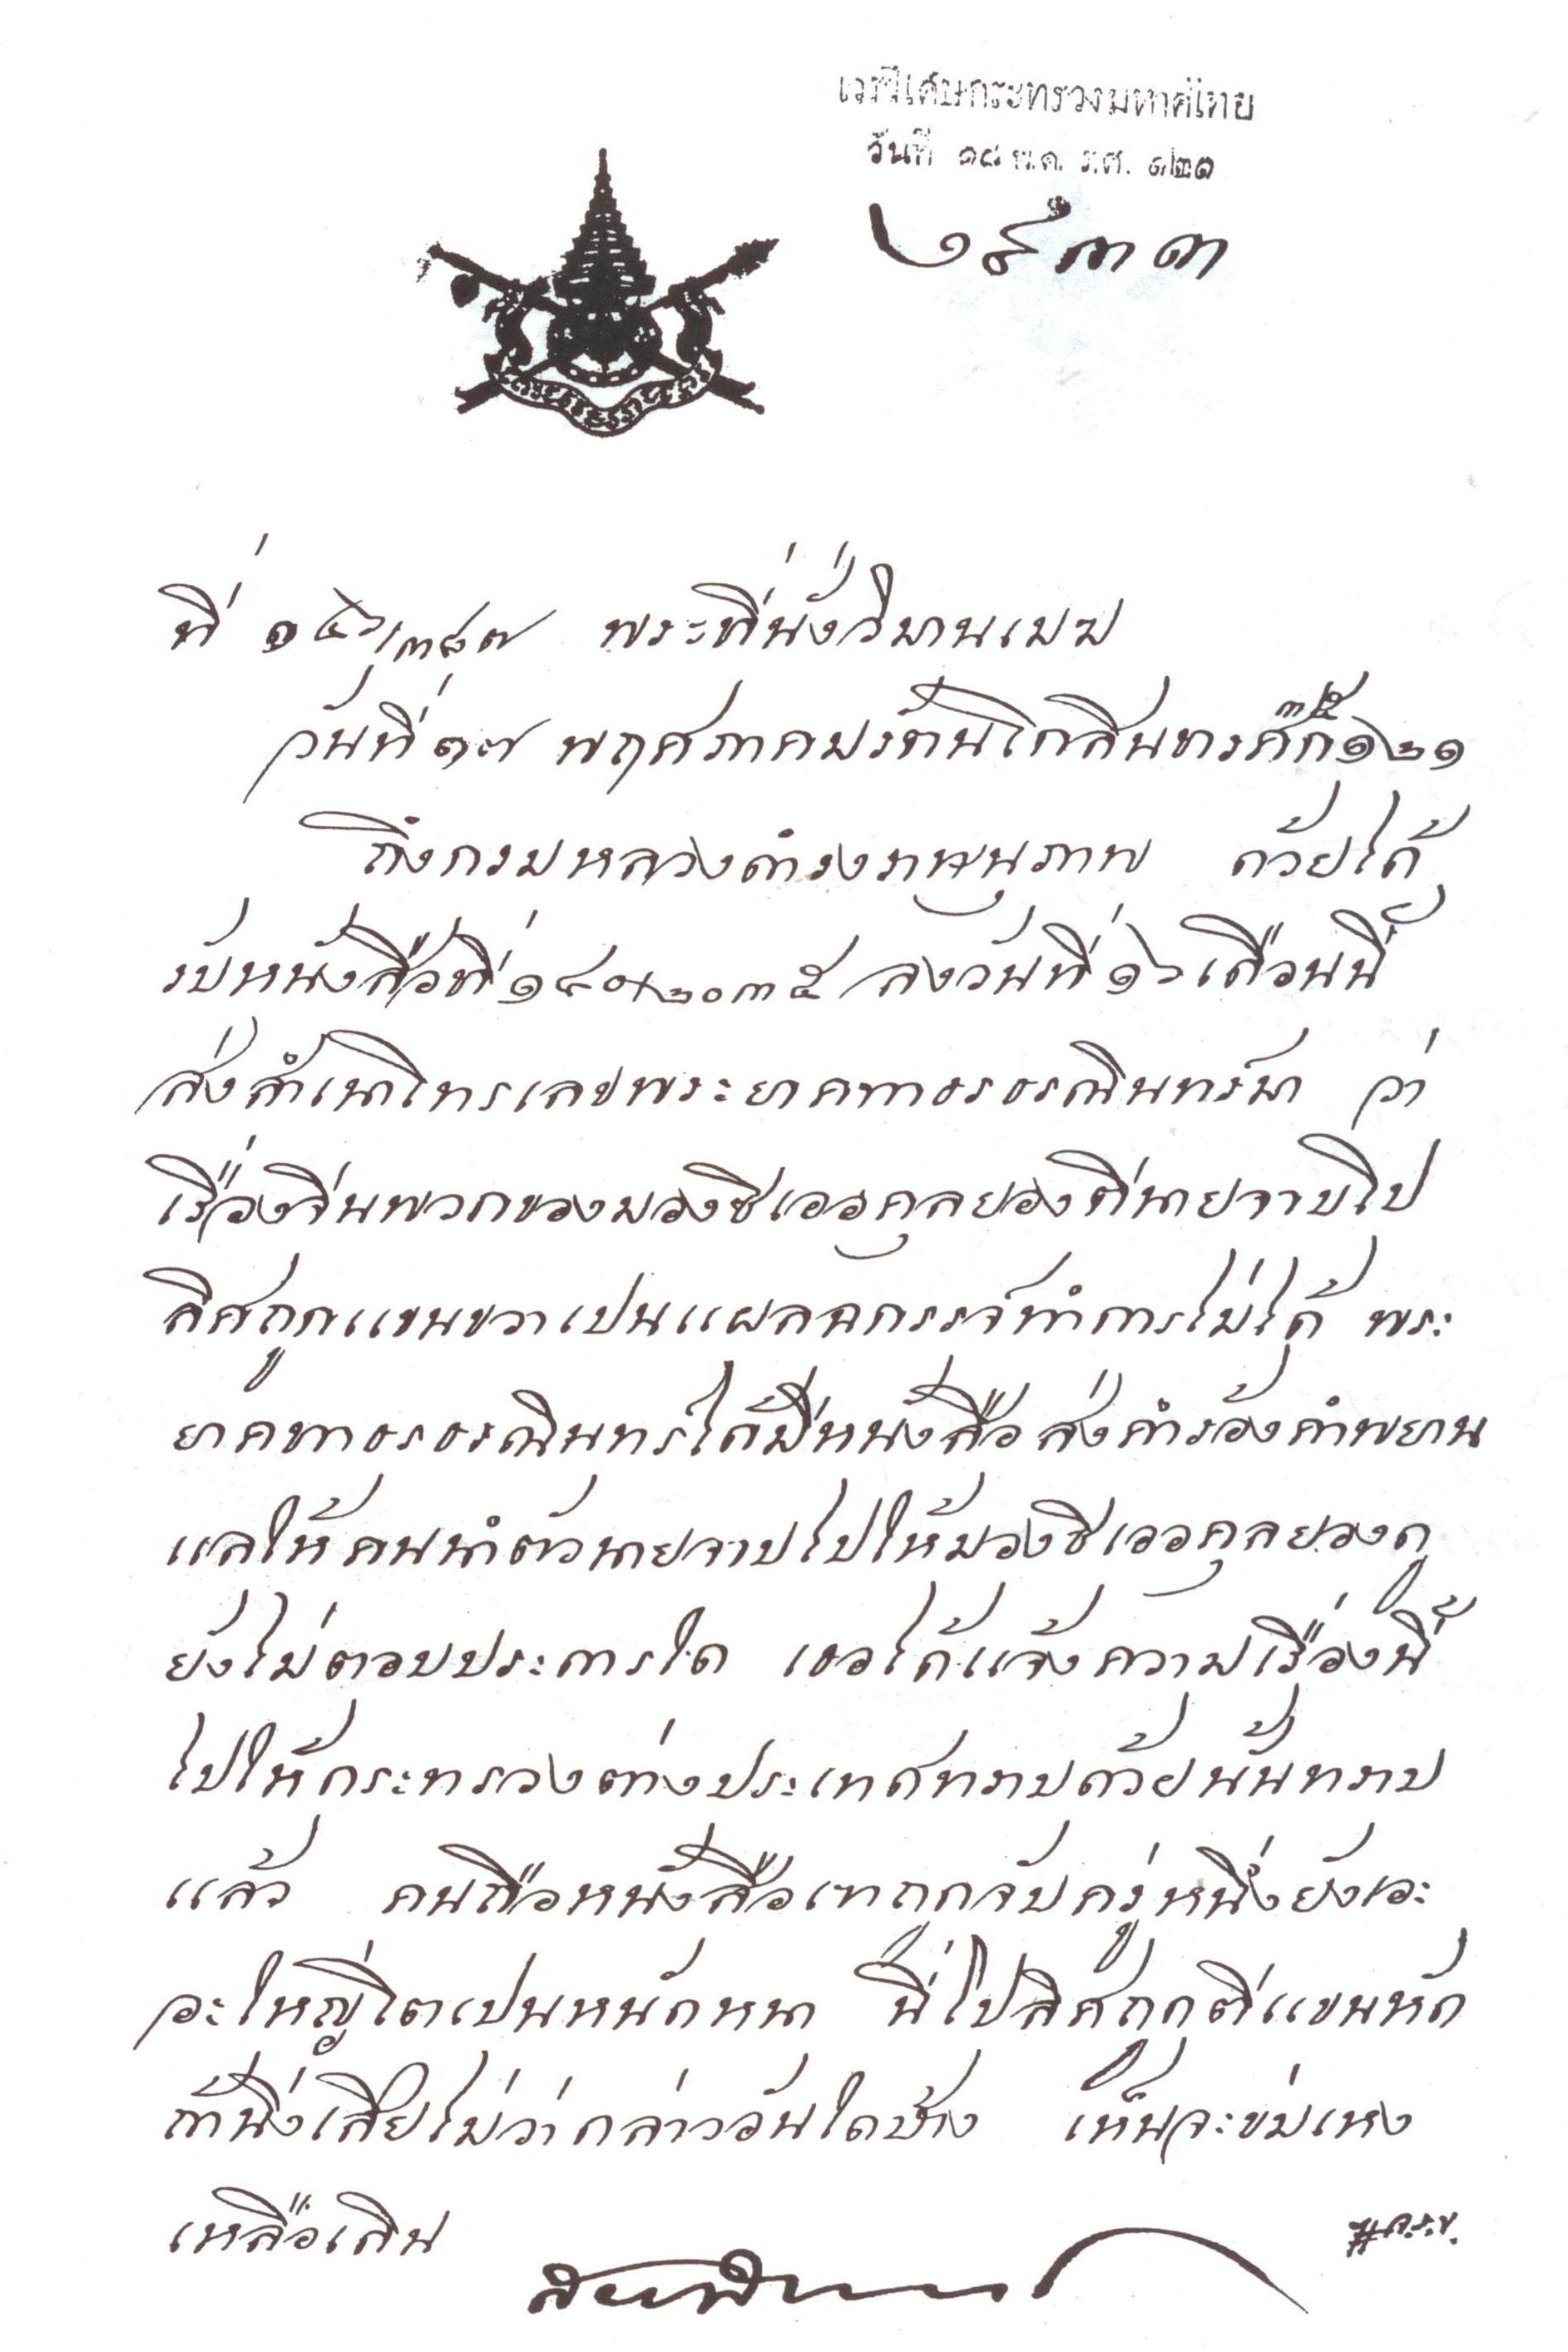 เวรวิเศษกระทรวงมหาดไทย
วันที่ ๑๘ พ.ค. ร.ศ. ๑๒๑
ที่ พระที่นั่งวิมานเมฆ
วันที่ ๑๗ พฤศภาคม รัตนโกสินทรศก ๑๒๑
ถึงกรมหลวงดำรงราชานุภาพ ด้วยได้
รับหนังสือที่ ลงวันที่ ๑๖ เดือนนี้
ส่งสำเนาโทรเลขพระยาคทาธรธรณินทร์มา ว่า
เรื่องจีนพวกของมองซิเออคุลยองตีนายจาบไป
ลิศถูกแขนขวาเปนแผลฉกรรจ์ทำการไม่ได้ พระ
ยาคทาธรธรณินทร์ได้มีหนังสือส่งคำร้องคำพยาน
แลให้คนนำตัวนายจาบไปให้มองซิเออคุลยองดู
ยังไม่ตอบประการใด เธอได้แจ้งความเรื่องนี้
ไปให้กระทรวงต่างประเทศทราบด้วยนั้นทราบ
แล้ว คนถือหนังสือเขาถูกจับครู่หนึ่งยังเอะ
อะใหญ่โตเปนหนักหนา นี่โปลิศถูกตีแขนหัก
ถ้านิ่งเสียไม่ว่ากล่าวอันใดบ้าง เห็นจะข่มเหง
เหลือเกิน
สยามินทร์